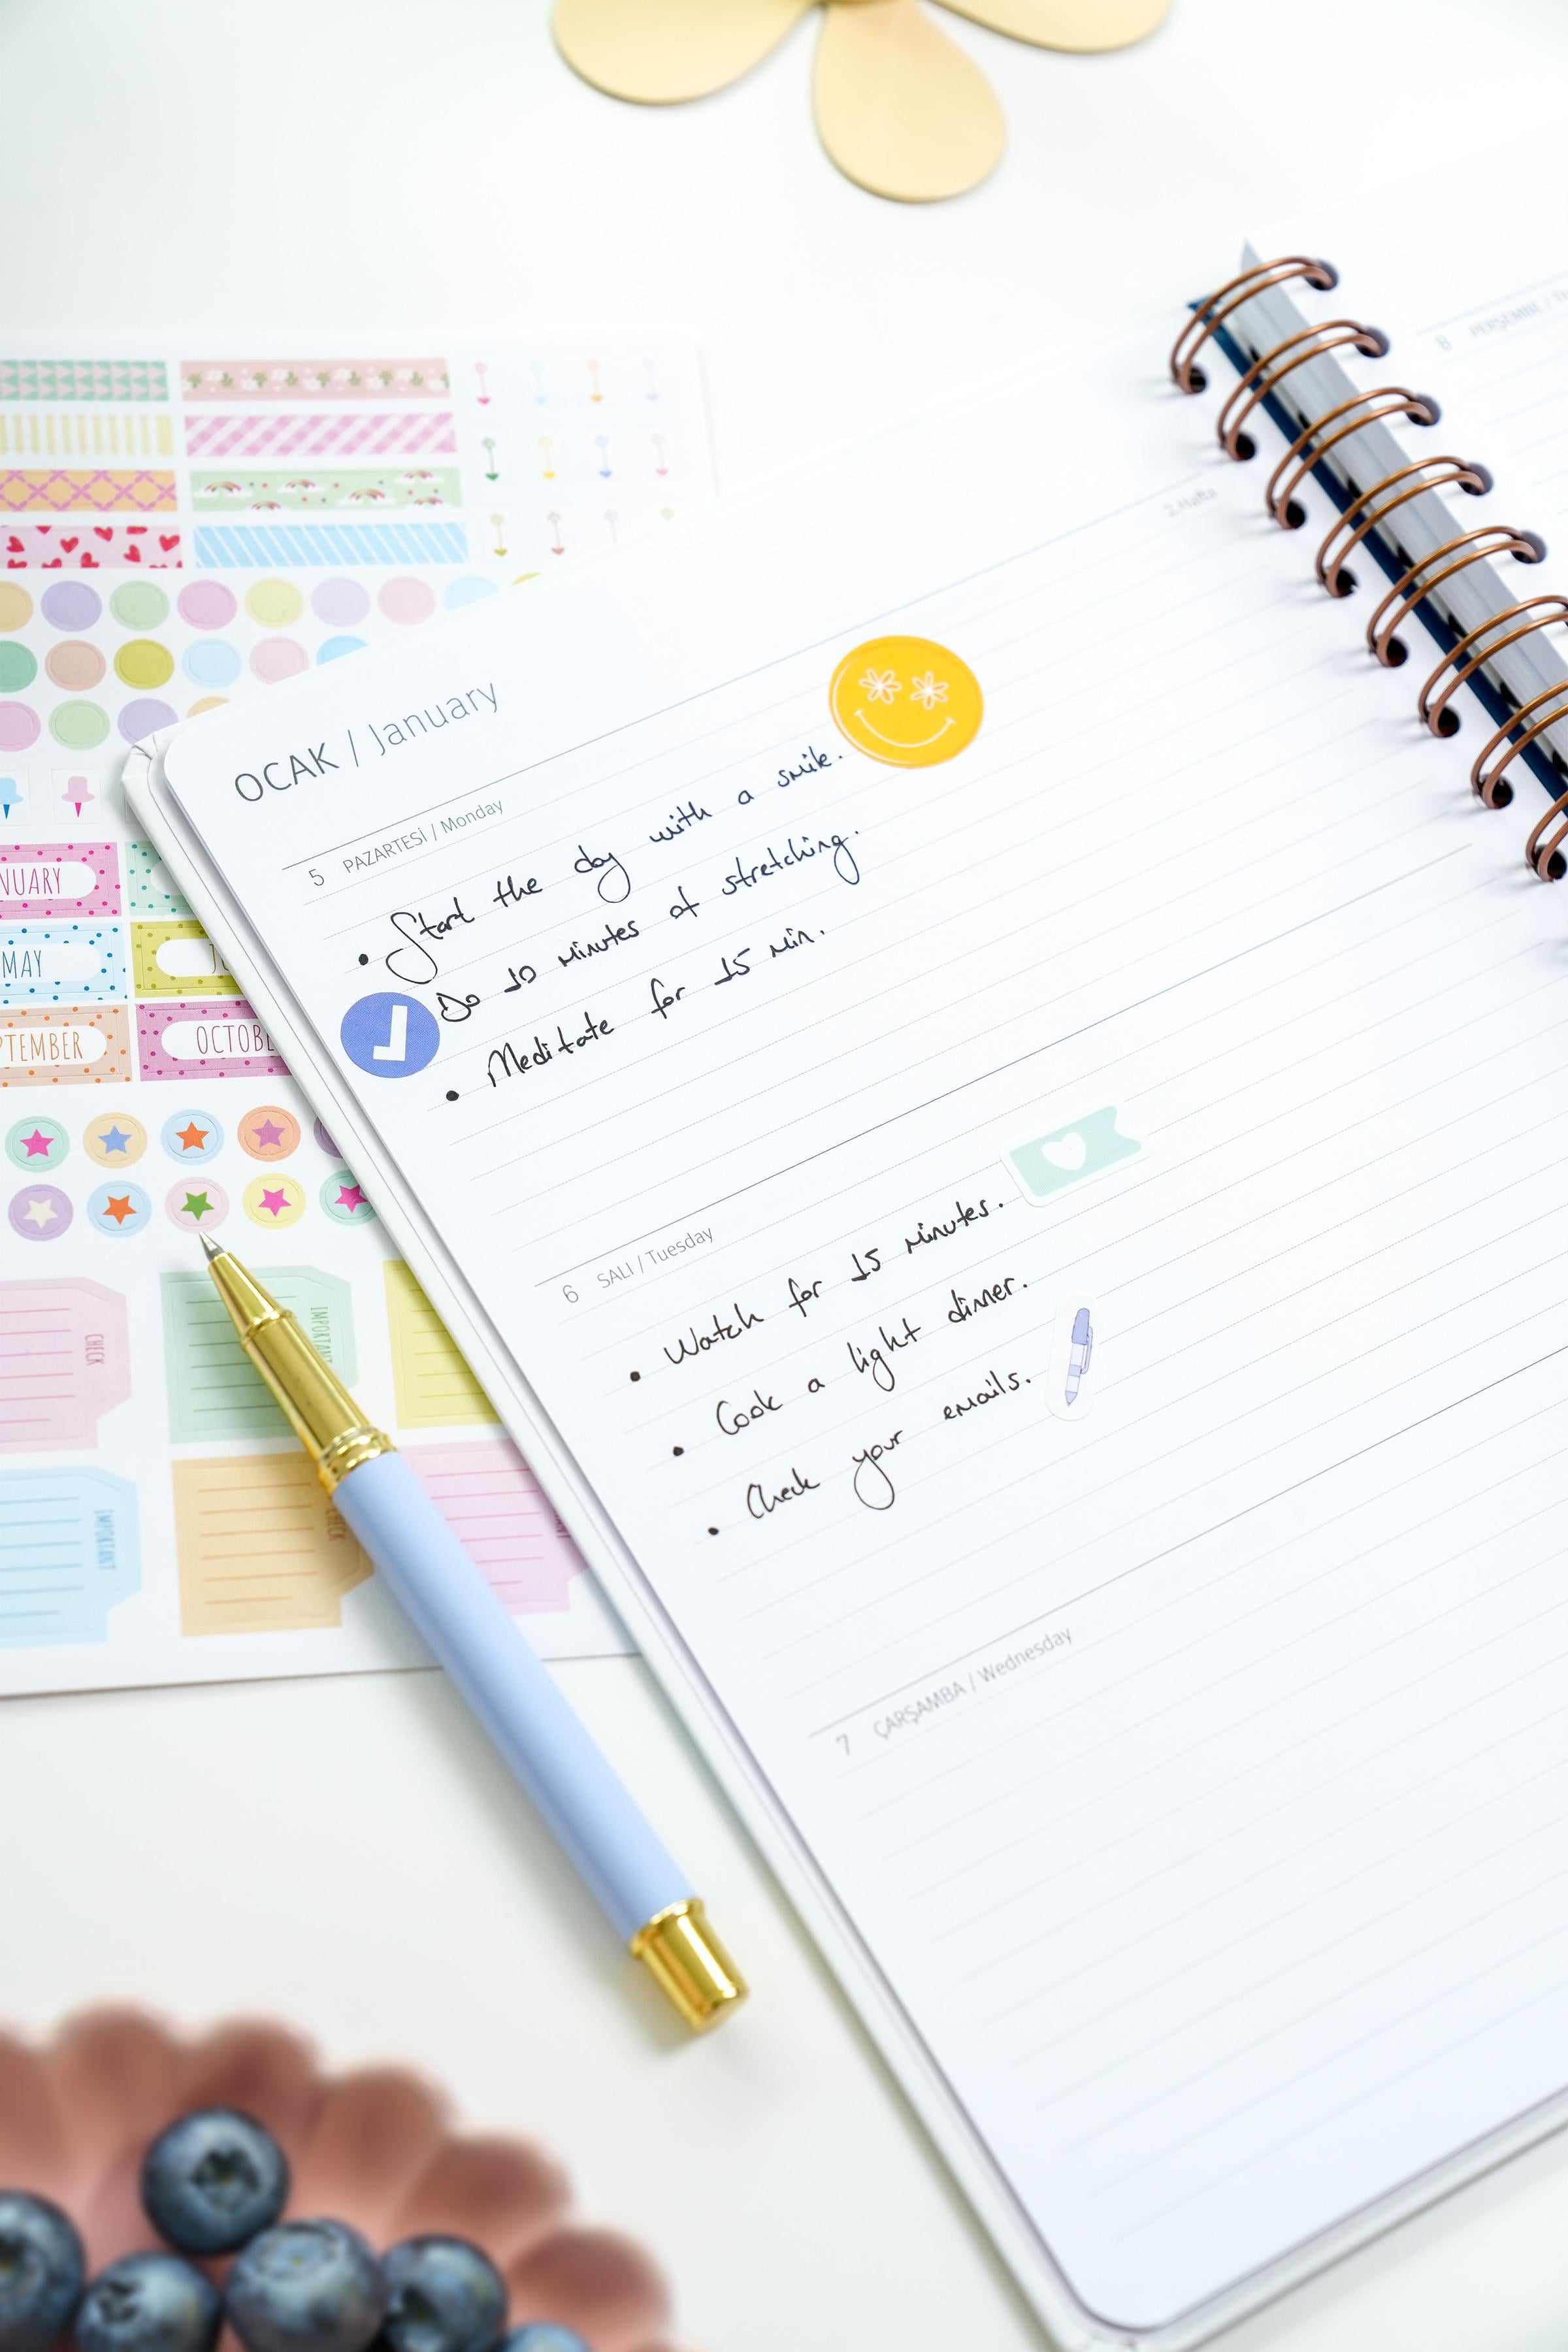 2.Hafta
OCAK / January
5 PAZARTESİ / Monday
• Start the day with a smile.
Do 10 minutes of stretching.
• Meditate for 15 min.
6 SALI / Tuesday
• Watch for 15 minutes.
• Cook a light dinner.
• Check your emails.
7 ÇARŞAMBA / Wednesday
8 PERŞEMBE /
MAY
OCTOBE
CHECK
IMPORTANT
IMPORTANT
CHECK